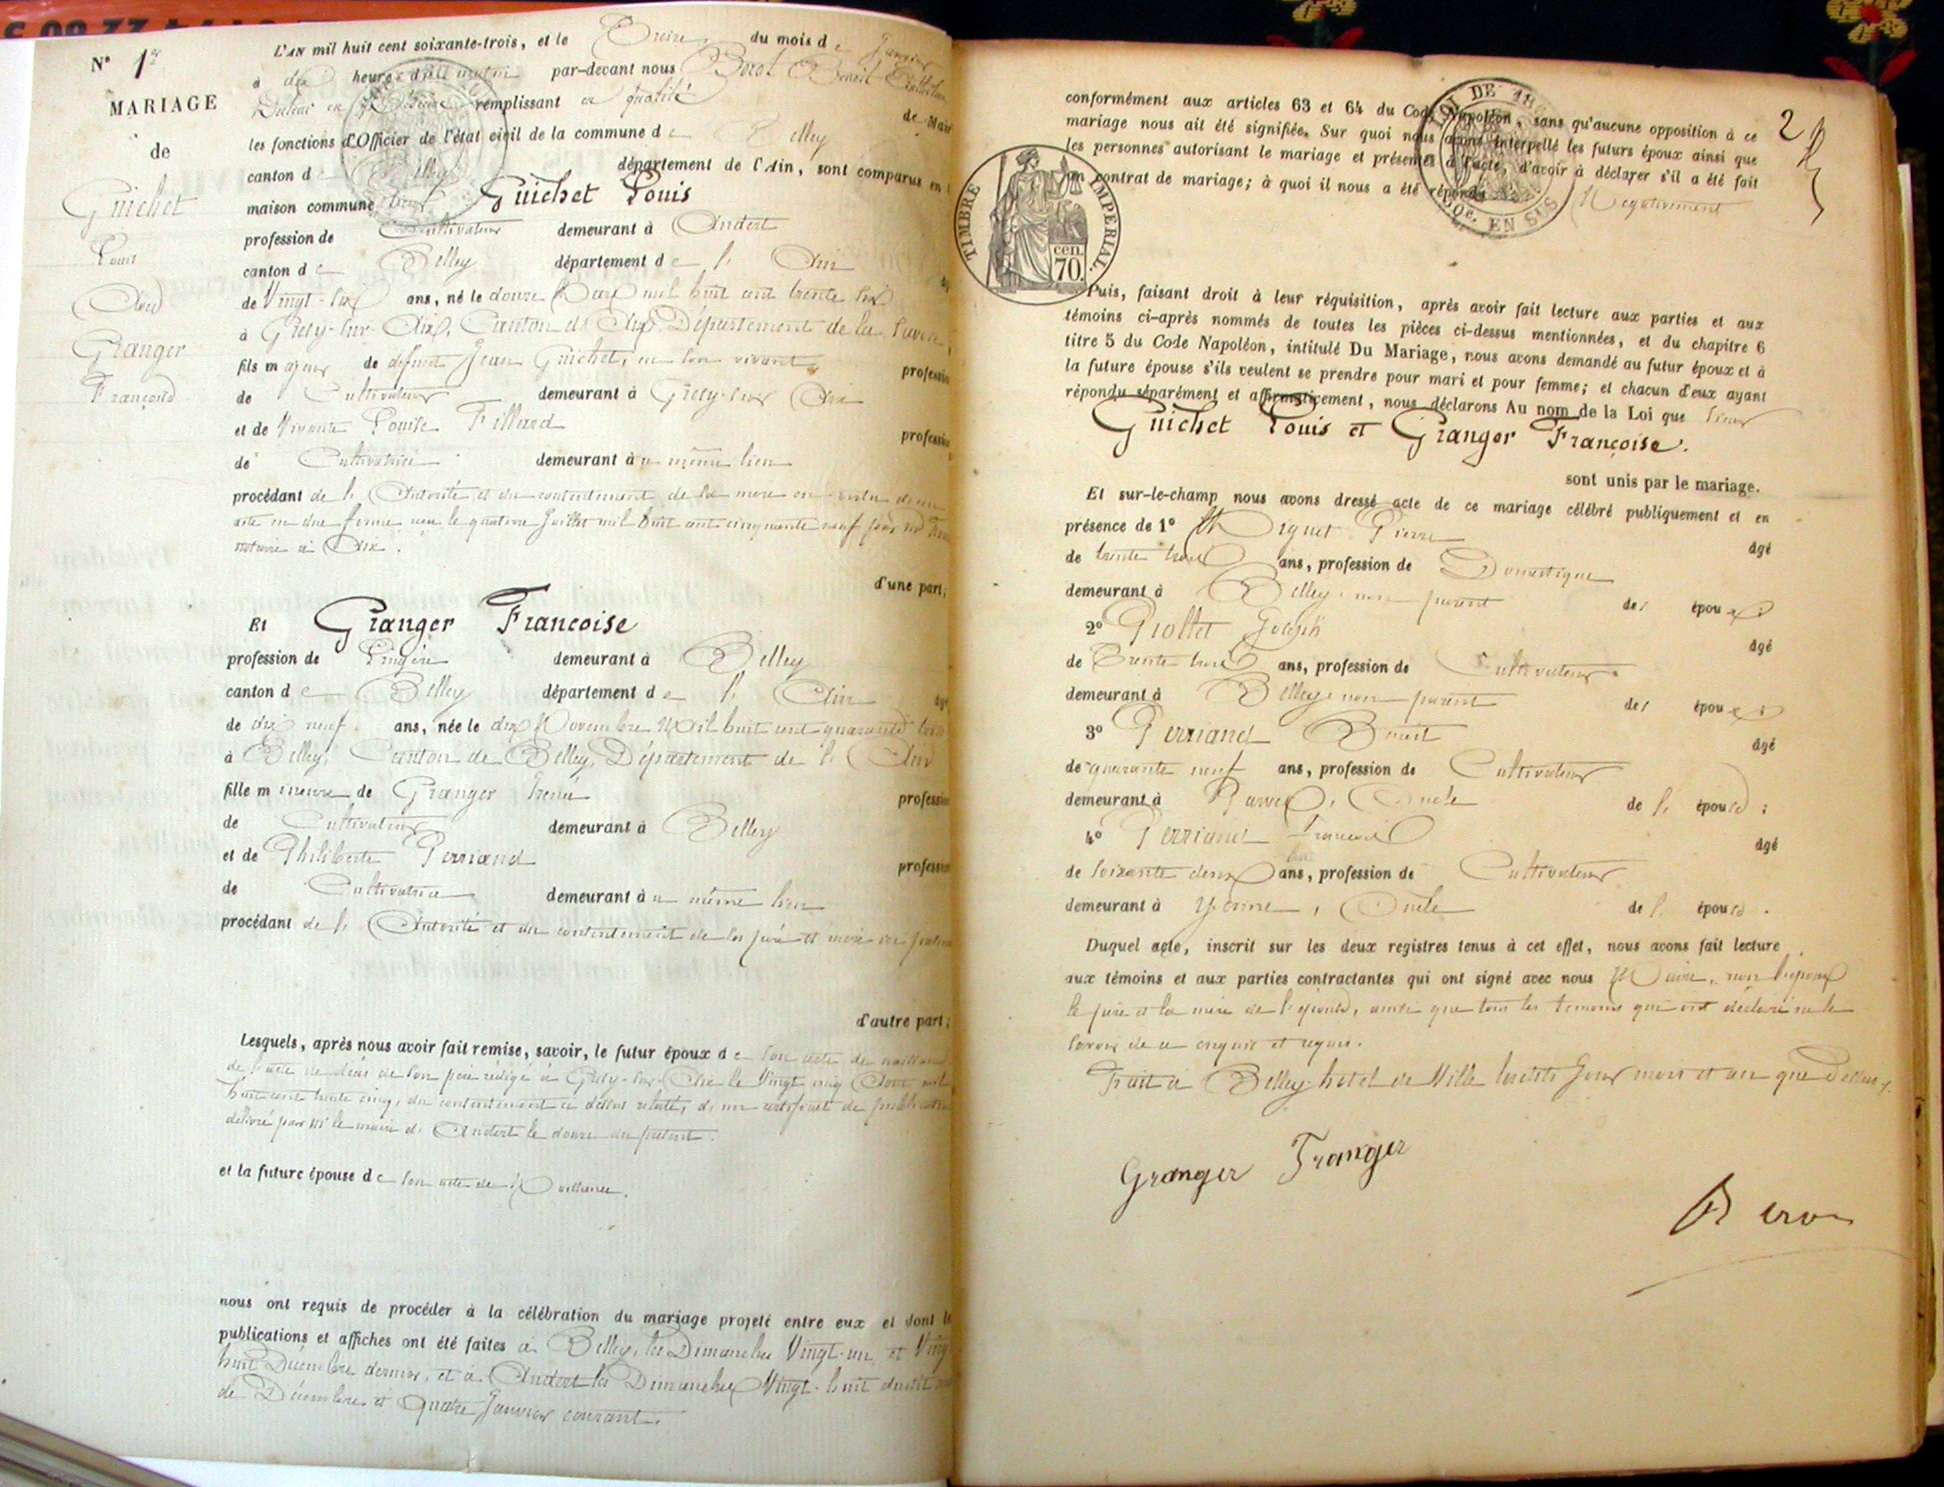 N° 1er
MARIAGE
de
Guichet
Louis
Avec
Granger
Françoise
L'AN mil huit cent soixante-trois, et le Treize du mois de Janvier
à dix heures du matin par-devant nous Benoit
remplissant en qualité de Maire
les fonctions d'Officier de l'état civil de la commune de Belley
canton de Belley département de l'Ain, sont comparus en
maison commune Guichet Louis
profession de Cultivateur demeurant à Andert
canton de Belley département de l'Ain
de Vingt-six ans, né le douze mil huit cent trente six
à Grésy-sur-Aix, Canton d'Aix, Département de la Savoie,
fils majeur de défunt Jean Guichet, en son vivant profession
de Cultivateur demeurant à Grésy-sur-Aix
et de Vivante Louise Fillard profession
de Cultivatrice demeurant au même lieu
procédant de l'Autorité et du consentement de sa mère en vertu d'un
acte en due forme reçu le quatorze Juillet mil huit cent cinquante neuf par
notaire à Aix.
d'une part;
Et Granger Françoise
profession de Lingère demeurant à Belley
canton de Belley département de l'Ain
de dix neuf ans, née le dix Novembre Mil huit cent quarante trois
à Belley, Canton de Belley, Département de l'Ain
fille mineure de Granger Irénée profession
de Cultivateur demeurant à Belley
et de Philiberte Perriand profession
de Cultivatrice demeurant au même lieu
procédant de l'Autorité et du consentement de ses père et mère ici présents
d'autre part;
Lesquels, après nous avoir fait remise, savoir, le futur époux de son acte de naissance,
de l'acte de décès de son père rédigé à Grésy-sur-Aix le Vingt cinq Août mil
huit cent trente cinq, du consentement ci dessus relaté, d'un certificat de publication
délivré par Mr le maire d'Andert le douze du présent.
et la future épouse de son acte de Naissance.
nous ont requis de procéder à la célébration du mariage projeté entre eux et dont les
publications et affiches ont été faites à Belley, les Dimanches Vingt-un et Vingt
huit Décembre dernier, et à Andert les Dimanches Vingt-huit dudit mois
de Décembre et quatre Janvier courant.
2
conformément aux articles 63 et 64 du Code Napoléon, sans qu'aucune opposition à ce
mariage nous ait été signifiée. Sur quoi nous avons interpellé les futurs époux ainsi que
les personnes autorisant le mariage et présentes à l'acte, d'avoir à déclarer s'il a été fait
un contrat de mariage; à quoi il nous a été répondu Négativement
TIMBRE IMPÉRIAL.
70 cen.
LOI DE 18
EN SUS
Puis, faisant droit à leur réquisition, après avoir fait lecture aux parties et aux
témoins ci-après nommés de toutes les pièces ci-dessus mentionnées, et du chapitre 6
titre 5 du Code Napoléon, intitulé Du Mariage, nous avons demandé au futur époux et à
la future épouse s'ils veulent se prendre pour mari et pour femme; et chacun d'eux ayant
répondu séparément et affirmativement, nous déclarons Au nom de la Loi que
Guichet Louis et Granger Françoise.
sont unis par le mariage.
Et sur-le-champ nous avons dressé acte de ce mariage célébré publiquement et en
présence de 1° Miguet Pierre âgé
de trente trois ans, profession de Domestique
demeurant à Belley, non parent des époux;
2° Piollet Joseph âgé
de Trente trois ans, profession de Cultivateur
demeurant à Belley, non parent des époux;
3° Perriand Benoit âgé
de quarante neuf ans, profession de Cultivateur
demeurant à Parves, Oncle de l'épouse;
4° Perriand François âgé
de soixante deux ans, profession de Cultivateur
demeurant à Yenne, Oncle de l'épouse.
Duquel acte, inscrit sur les deux registres tenus à cet effet, nous avons fait lecture
aux témoins et aux parties contractantes qui ont signé avec nous Maire, non l'époux
le père et la mère de l'épouse, ainsi que tous les témoins qui ont déclaré ne le
savoir de ce enquis et requis.
Fait à Belley hotel de Ville lesdits Jour mois et an que Dessus.
Granger Franger